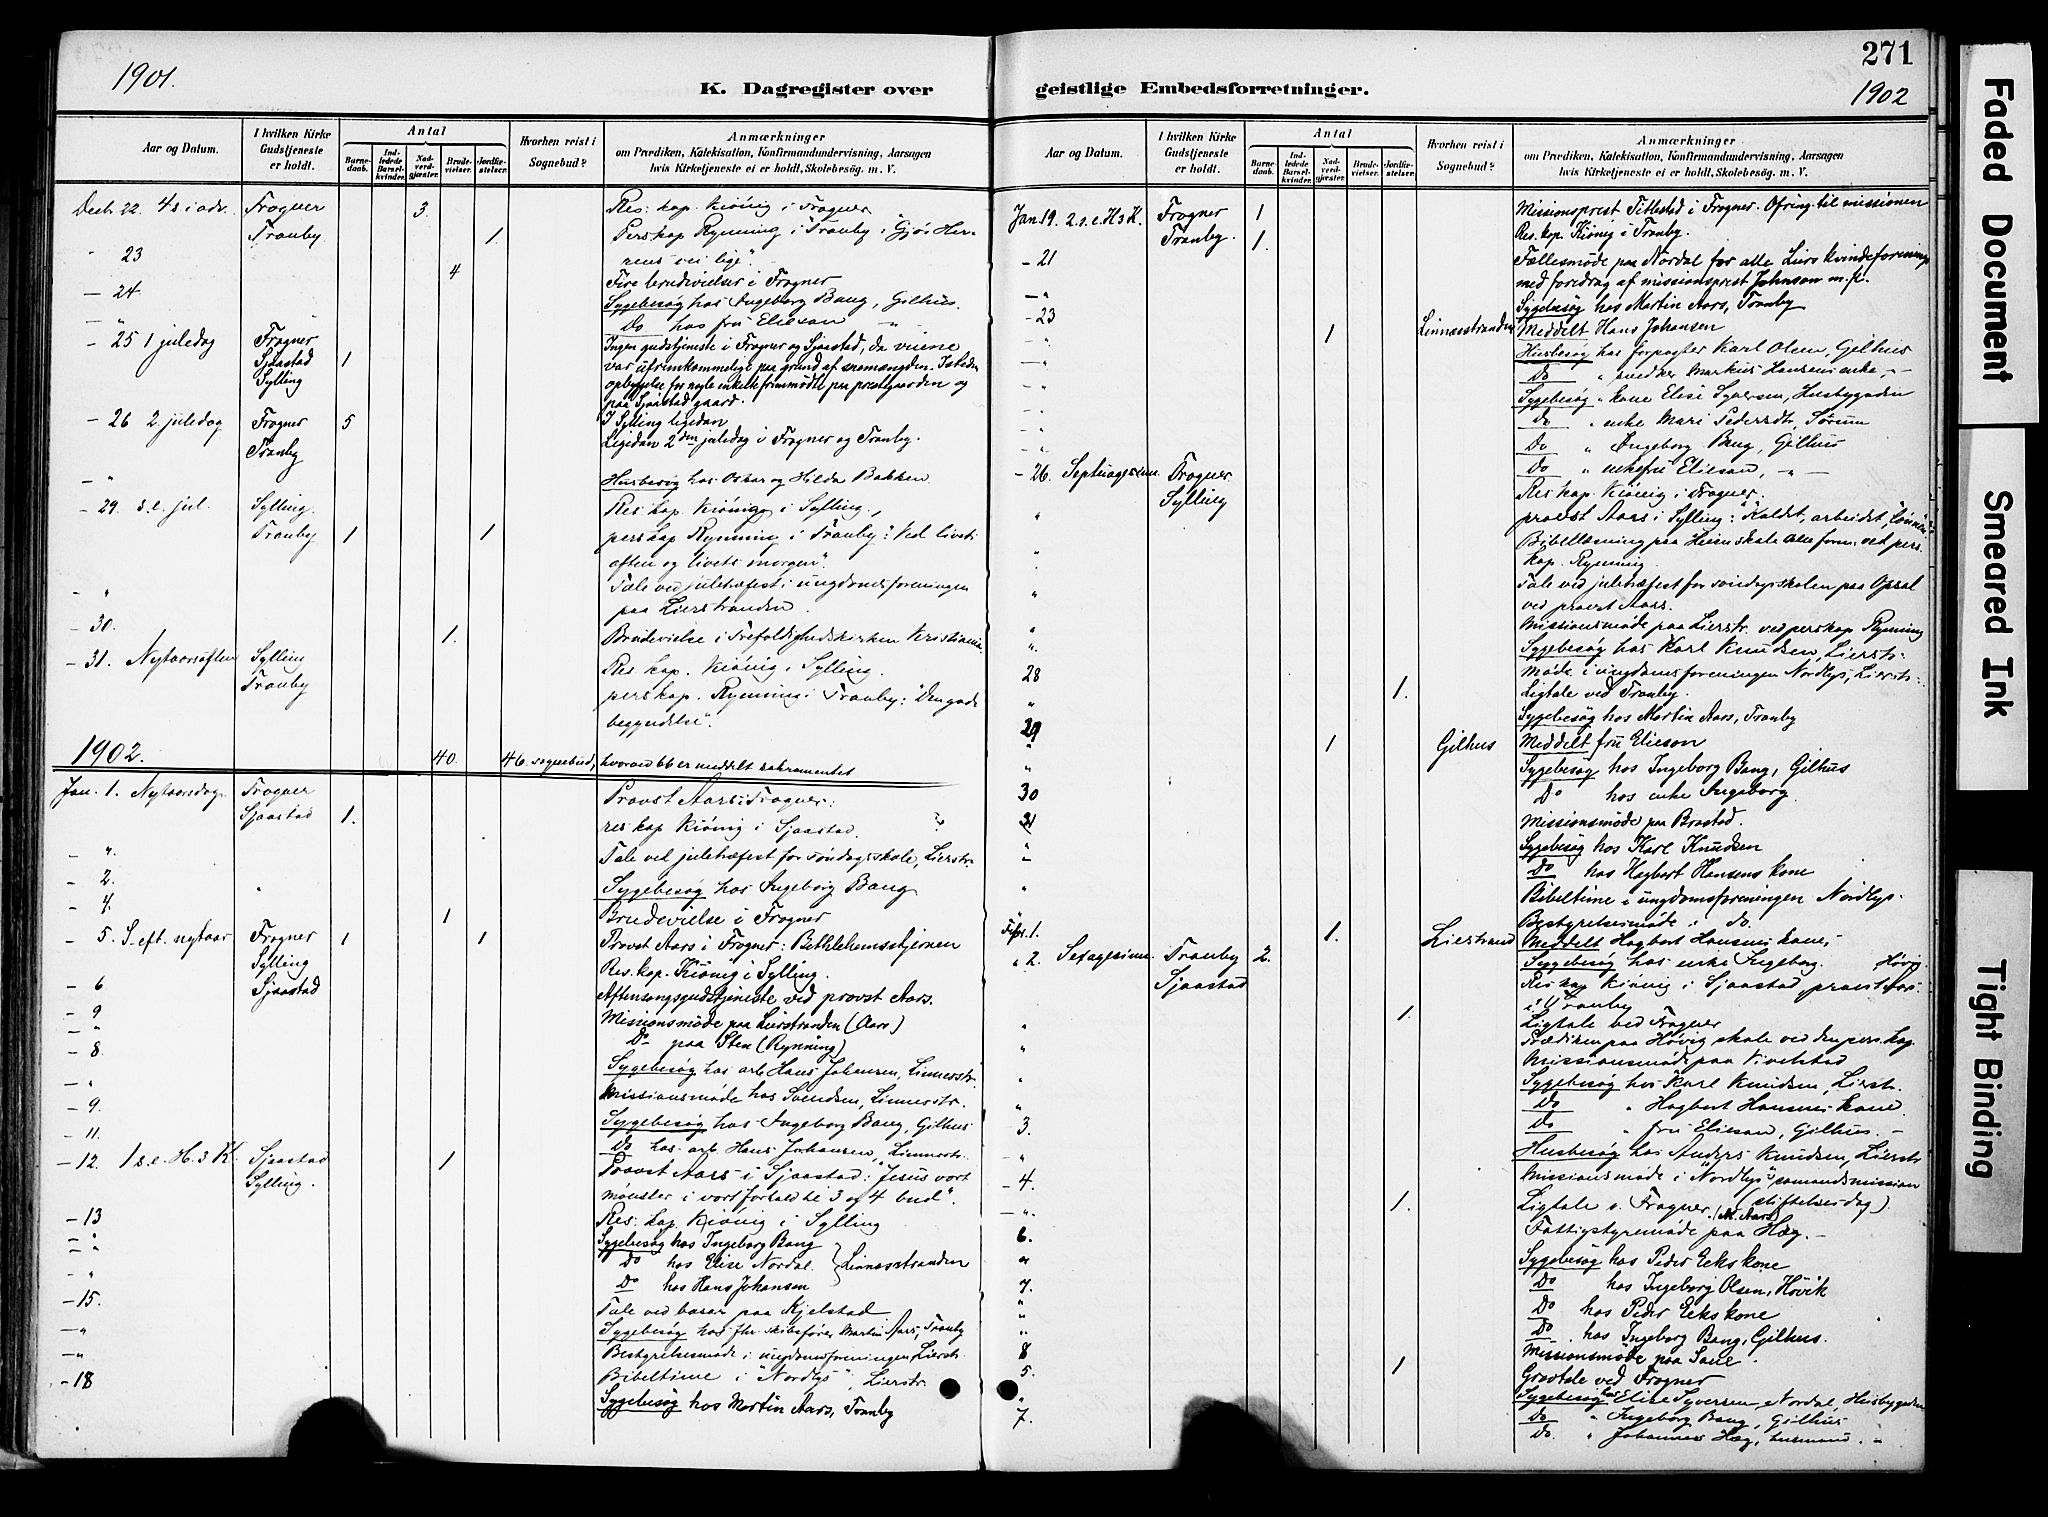 1901.
K. Dagregister over
Aar og Datum.
I hvilken Kirke Gudstjeneste er holdt.
Antal
Barnedaab.
Indledede Barselkvinder.
Nadverdgjæster.
Brudevielser.
Jordfæstelser.
Hvorhen reist i Sognebud?
Anmærkninger
om Prædiken, Katekisation, Konfirmandundervisning, Aarsagen
hvis Kirketjeneste ei er holdt, Skolebesøg. m. V.
Decbr. 22. 4 s i adv. Frogner 3. Res. kap. Kiönig i Frogner
Tranby 1. Perskap Rynning i Tranby: Gjör Her-
- 23 rens vei lige".
4 Fire brudevielser i Frogner
— 24 Sygebesøg hos Ingeborg Bang, Gilhus.
" Do hos fru Elieson "
- 25 1 juledag Frogner Ingen gudstjeneste i Frogner og Sjaastad, da veiene
Sjaastad 1 var ufremkommelige paa grund af snemængden. Isteden
Sylling opbyggelse for nogle enkelte fremmödte paa prestgaarden og
paa Sjaastad gaard.
- 26 2. juledag Frogner 5 I Sylling ligedan
Tranby Ligedan 2den juledag i Frogner og Tranby.
- " Husbesøg hos Oskar og Hilda Bakken
- 29. s. e. jul. Sylling. Res. kap. Kiönig i Sylling.
Tranby 1 1 perskap Rynning i Tranby: "Ved livets
aften og livets morgen".
- " Tale ved juletræfest i ungdomsforeningen
paa Lierstranden.
- 30. 1. Brudevielse i Trefoldighedskirken Kristiania.
- 31. Nytaarsaften Sylling Res. kap. Kiönig i Sylling.
Tranby perskap. Rynning i Tranby: "Den gode
begyndelse".
1902. 40. 46 sognebud, hvorved 66 er meddelt sakramentet
Jan. 1. Nytaarsdag Frogner Provst Aars i Frogner:
Sjaastad 1. res kap Kiönig i Sjaastad.
- ". Tale ved juletræfest for söndagsskole, Lierstr.
- 2. Sygebesøg hos Ingeborg Bang
- 4. 1 Brudevielse i Frogner
- 5. S. eft. nytaar Frogner 1 1 Provst Aars i Frogner: Bethlehemsstjernen
Sylling Res. kap. Kiönig i Sylling.
- 6 Sjaastad Aftensangsgudstjeneste ved provst Aars.
- 9 Missionsmöde paa Lierstranden (Aars)
- " Do paa Sten (Rynning)
- 8. Sygebesøg hos arb. Hans Johansen, Linnesstr.
- " Missionsmöde hos Svendsen, Linnesstr.
- 9. Sygebesøg hos Ingeborg Bang, Gilhus
- 11. Do hos arb. Hans Johansen, Linnesstr.
- 12. 1 s. e. H. 3 K. Sjaastad 1 Provst Aars i Sjaastad: Jesus vort
Sylling. mönster i vort forhold til 3 og 4 bud".
- 13 Res. kap. Kiönig i Sylling
- " Sygebesøg hos Ingeborg Bang
- " Do hos Elise Nordal. } Linnesstranden
Do hos Hans Johansen
- 15. Tale ved basar paa Kjelstad
- " Sygebesøg hos fhv. skibsfører Martin Aars, Tranby
- " Bestyrelsesmöde i ungdomsforeningen, Lierstr.
- 18 Bibeltime i "Nordlys", Lierstr.
Sygebesøg hos Martin Aars, Tranby
271
geistlige Embedsforretninger.
1902
Aar og Datum.
I hvilken Kirke Gudstjeneste er holdt.
Antal
Barnedaab.
Indledede Barselkvinder.
Nadverdgjæster.
Brudevielser.
Jordfæstelser.
Hvorhen reist i Sognebud?
Anmærkninger
om Prædiken, Katekisation, Konfirmandundervisning, Aarsagen
hvis Kirketjeneste ei er holdt, Skolebesøg. m. V.
Jan 19. 2. s. e. H 3 K. Frogner 1 Missionsprest Tittestad i Frogner. Ofring til missionen
Tranby. 1. Res. kap. Kiönig i Tranby.
- 21 Fællesmöde paa Nordal for alle Liers kvindeforeninger
med foredrag af missionsprest Johnson m. fl.
- " Sygebesøg hos Martin Aars, Tranby
- 23 1 Linnesstranden Meddelt Hans Johansen
- " Husbesøg hos forpagter Karl Olsen, Gilhus
- " Do " snedker Markus Hansens enke, -
- " Sygebesøg " kone Elise Syversen, Husbygaden
- " Do " enke Mari Pedersdt, Sørum
- " Do " Ingeborg Bang, Gilhus
Do " enkefru Elieson, - " -
- 26 Septuagesim. Frogner Res kap. Kiönig i Frogner.
Sylling provst Aars i Sylling: "Kaldet, arbeidet, lönnen"
" Bibellæsning paa Heiens skole alle form. ved pers.
kap. Rynning.
" Tale ved juletræfest for söndagsskolen paa Opsal
ved provst Aars.
" Missionsmöde paa Lierstr. ved perskap Rynning
". Sygebesøg hos Karl Knudsen, Lierstr.
28 Möde i ungdomsforeningen Nordlys, Lierstr.
" 1. Ligtale ved Tranby.
29 Sygebesøg hos Martin Aars, Tranby
" 1 Gilhus Meddelt fru Elieson
" Sygebesøg hos Ingeborg Bang, Gilhus
30 Do hos enke Ingeborg.
31 Missionsmöde paa Brastad.
" Sygebesøg hos Karl Knudsen
- Do hos Hagbart Hansens kone
" Bibeltime i ungdomsforeningen Nordlys.
Bestyrelsesmöde i do.
Febr. 1. 1. Lierstrand Meddelt Hagbart Hansens kone,
" 2. Sexagesima. Tranby 2. Sygebesøg hos enke Ingeborg. Hövig.
Sjaastad Res kap Kiönig i Sjaastad, provst Aars
i Tranby
" 1. Ligtale ved Frogner
" Prædiken paa Hövig skole ved den pers. kap.
Missionsmöde paa Kivelstad
" Sygebesøg hos Karl Knudsen, Lierstr.
" Do " Hagbart Hansens kone.
3. Do " fru Elieson, Gilhus. -
" Husbesøg hos Anders Knudsen, Lierstr
- 4. Missionsmöde i "Nordlys" sömandsmission
- ". 1. Ligtale v. Frogner. (stiftelsesdag)
(M. Aars)
6. Fattigstyremöde paa Hæg. -
" Sygebesøg hos Peder Eeks kone
7. Do hos Ingeborg Olsen, Hövik
" Do hos Peder Eeks kone
" Do. hos Ingeborg Bang, Gilhus.
8 Missionsmöde paa Sane.
5. 1 Gravtale ved Frogner
" Sygebesøg hos Elise Syversen Nordal, Husbygaden
7. Do " Ingeborg Bang, Gilhus
Do. " Johannes Hæg, husmand. -
Faded Document
Smeared Ink
Tight Binding